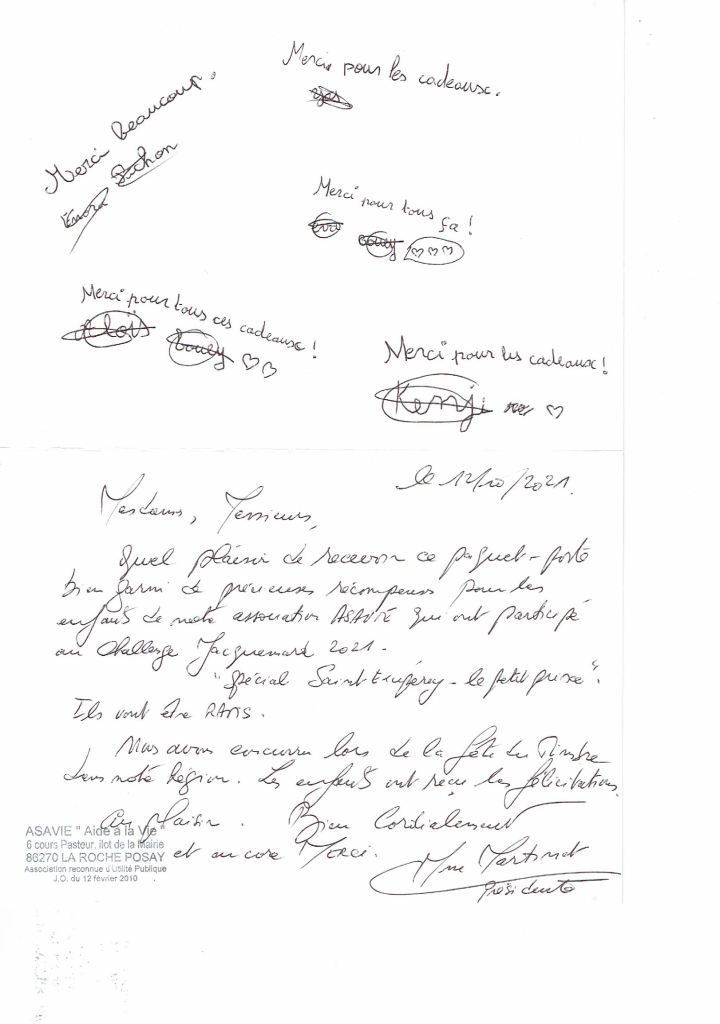 Merci pour les cadeaux.
Merci beaucoup.
Pichon
Merci pour tous ça !
Merci pour tous ces cadeaux !
Merci pour les cadeaux !
Kenji
le 12/10/2021.
Mesdames, Messieurs,
Quel plaisir de recevoir ce paquet-poste
bien garni de précieuses récompenses pour les
enfants de notre association ASAVIE qui ont participé
au Challenge Jacquemard 2021.
"Spécial Saint Exupérey - le petit prince".
Ils vont être RAVIS.
Nous avons concouru lors de la fête du Timbre
dans notre Région. Les enfants ont reçu les félicitations.
Au plaisir. Bien Cordialement
et encore Merci.
Mme Martinet
Présidente
ASAVIE " Aide à la Vie "
6 cours Pasteur, ilot de la Mairie
86270 LA ROCHE POSAY
Association reconnue d'Utilité Publique
J.O. du 12 février 2010